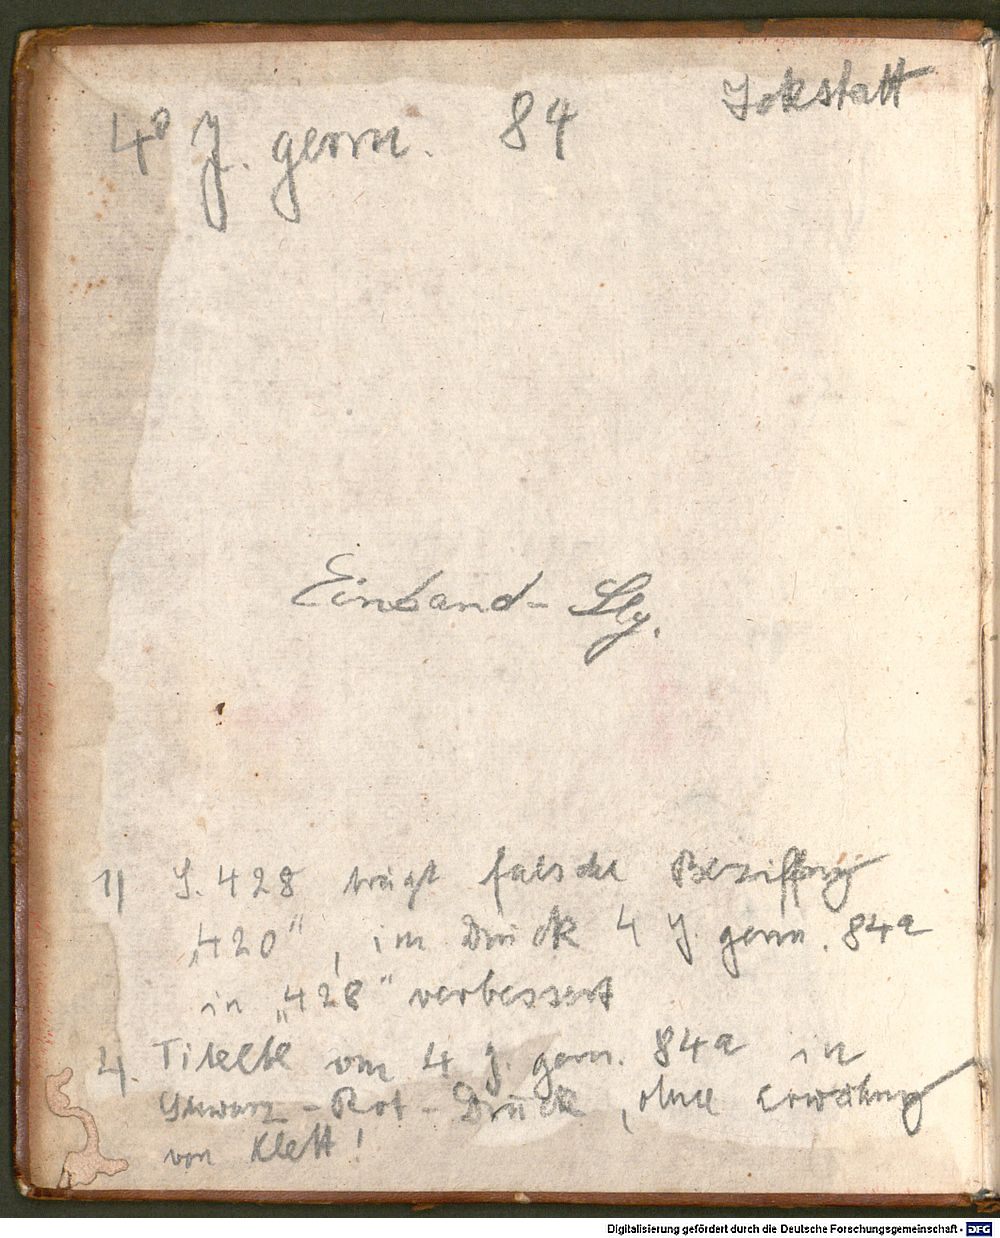 4° J. germ. 84
Ickstatt
Einband-Slg.
1) S. 428 trägt falsche Bezifferung
„420“, im Druck 4 J. germ. 84a
in „428“ verbessert
Titelbl. von 4 J. germ. 84a in
Schwarz-Rot-Druck, ohne Erwähnung
von Klett!
Digitalisierung gefördert durch die Deutsche Forschungsgemeinschaft - DFG